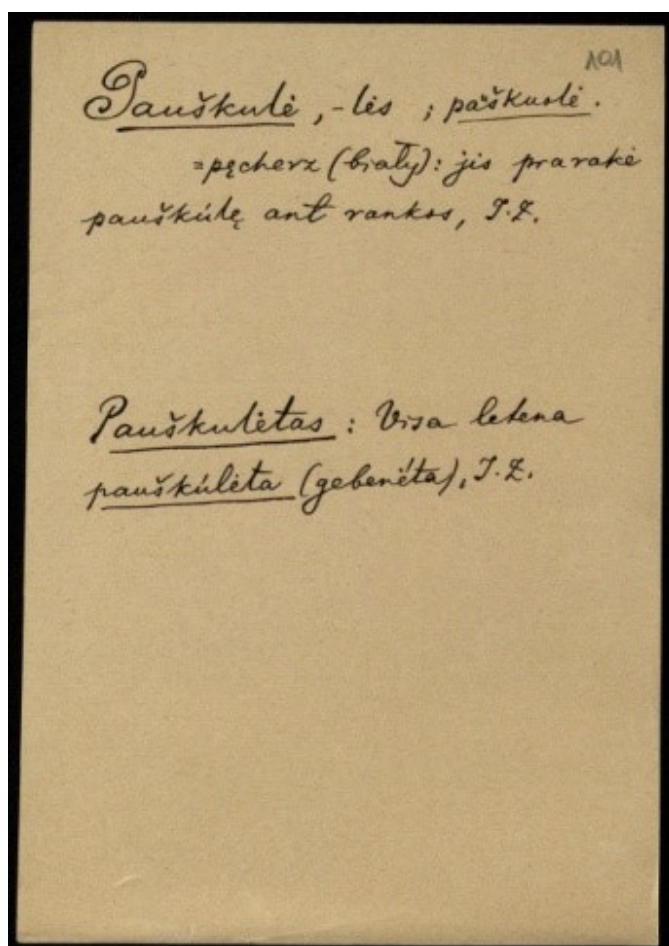 101
Pauškulė, -lės ; pàškuolė.
=pęcherz (biały): jis prarakė
pauškúlę ant rankos, J.Z.
Pauškulėtas : Visa letena
pauškúlėta (gebenėta), J.Z.